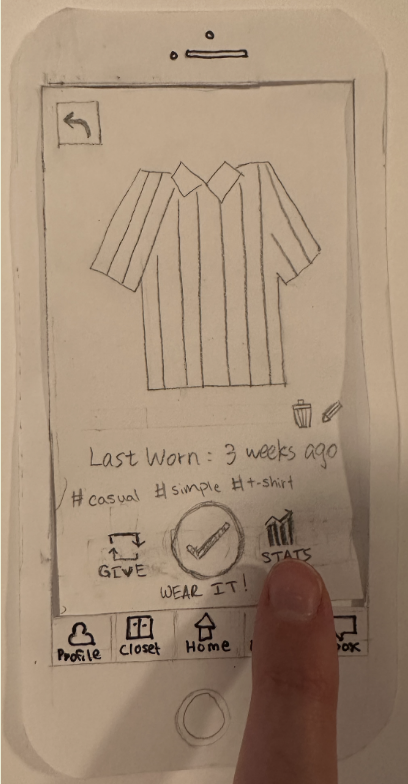 Last Worn: 3 weeks ago
#casual #simple #t-shirt
GIVE
STATS
WEAR IT!
Profile
Closet
Home